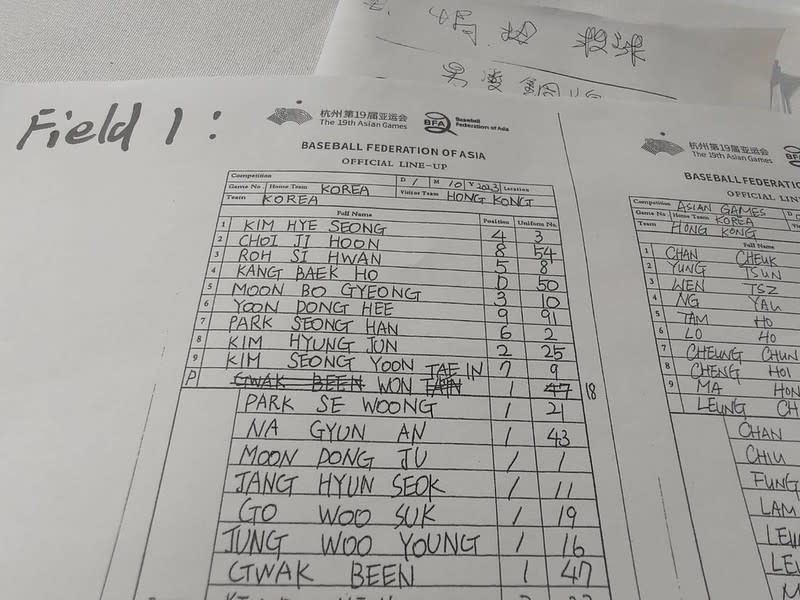 投球
Field 1 :
杭州第19届亚运会
The 19th Asian Games
BFA Baseball Federation of Asia
BASEBALL FEDERATION OF ASIA
OFFICIAL LINE-UP
Competition D 1 M 10 Y 2023 Location
Game No. Home Team KOREA Visitor Team HONG KONG
Team KOREA
Full Name Position Uniform No.
1 KIM HYE SEONG 4 3
2 CHOI JI HOON 8 54
3 ROH SI HWAN 5 8
4 KANG BAEK HO D 50
5 MOON BO GYEONG 3 10
6 YOON DONG HEE 9 91
7 PARK SEONG HAN 6 2
8 KIM HYUNG JUN 2 25
9 KIM SEONG YOON 7 9
P GWAK BEEN WON TAE IN 1 47 18
PARK SE WOONG 1 21
NA GYUN AN 1 43
MOON DONG JU 1 1
JANG HYUN SEOK 1 11
GO WOO SUK 1 19
JUNG WOO YOUNG 1 16
GWAK BEEN 1 47
杭州第19届亚运会
The 19th Asian Games
BASEBALL FEDERATIO
OFFICIAL LINE
Competition ASIAN GAMES D
Game No. Home Team KOREA
Team HONG KONG
Full Name
1 CHAN CHEUK
2 YUNG TSUN
3 WEN TSZ
4 NG YAU
5 TAM HO
6 LO HO
7 CHEUNG CHUN
8 CHENG HOI
9 MA HON
LEUNG CH
CHAN
CHIU
FUNG
LAM
LEU
LEU